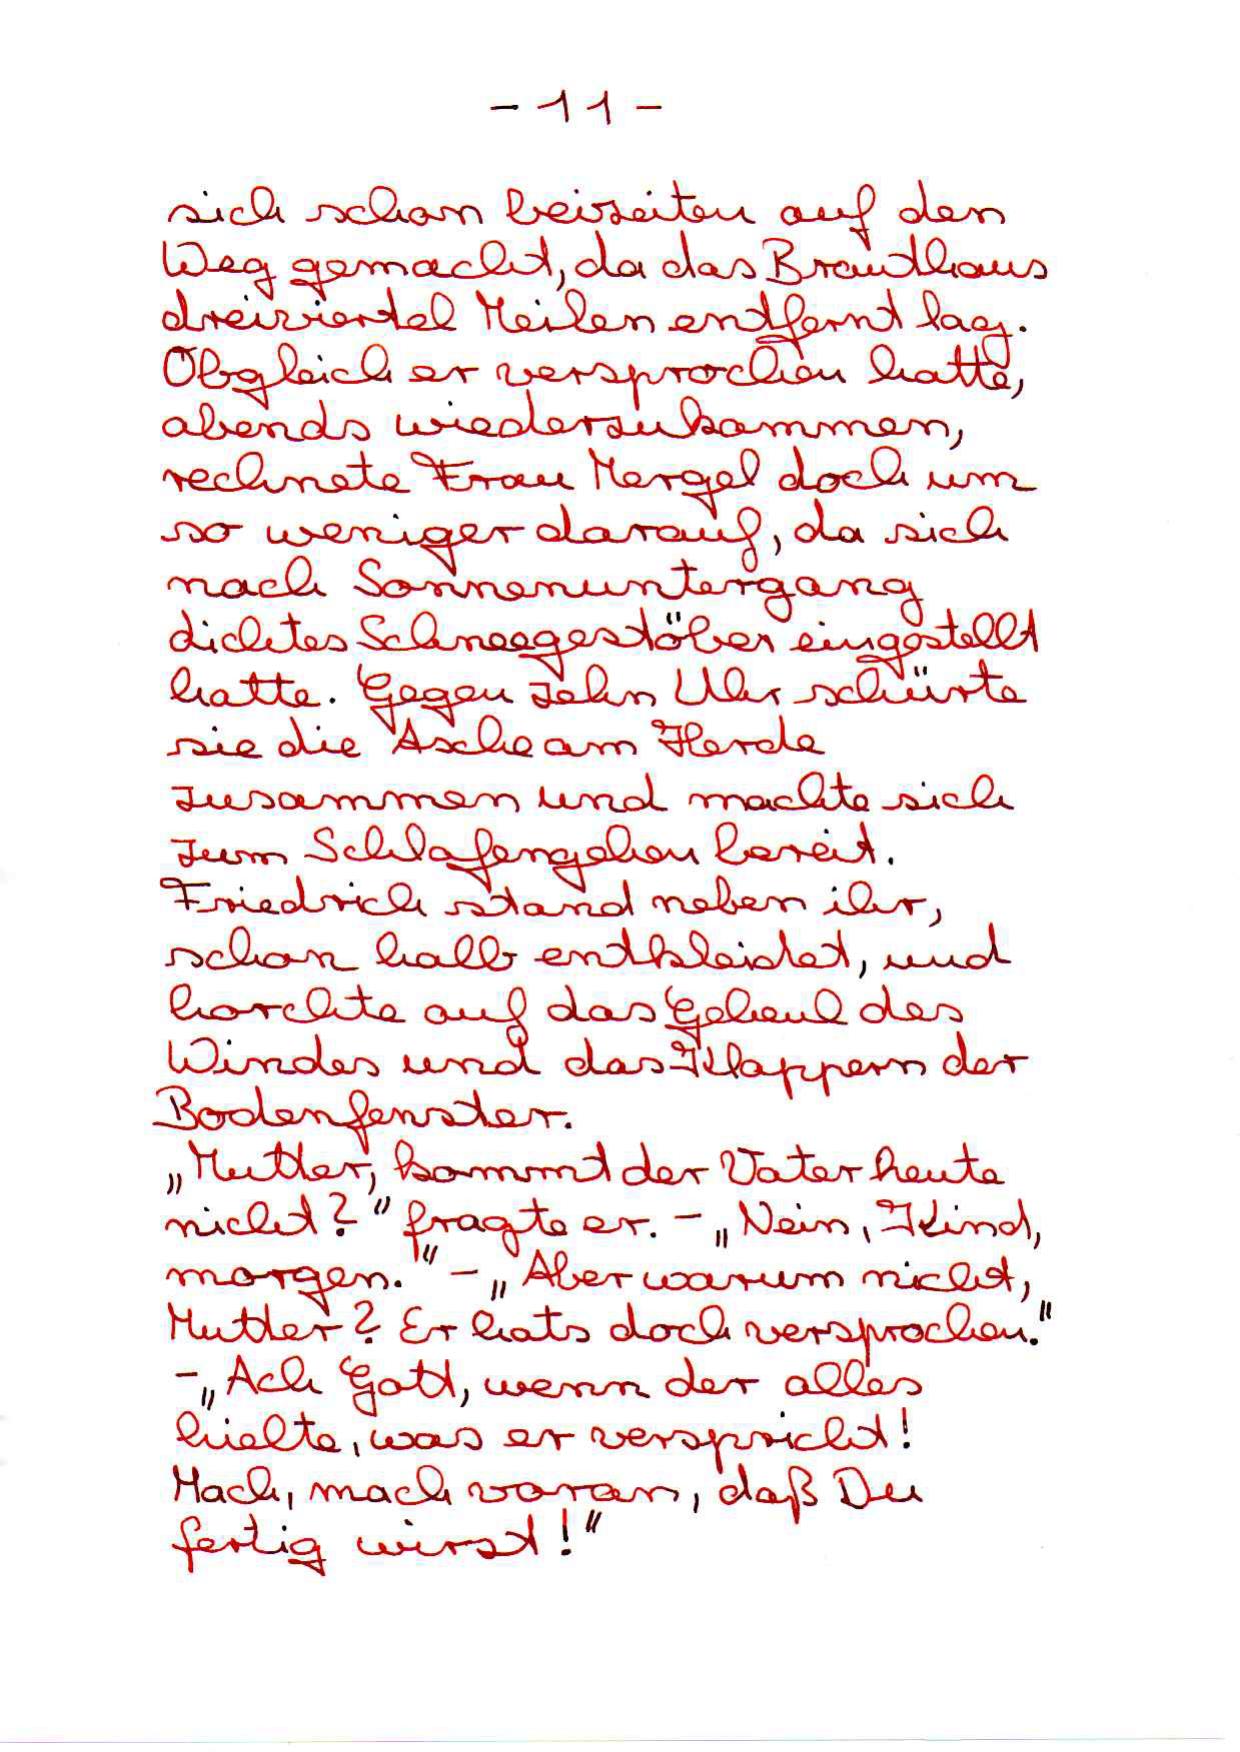 - 11 -
sich schon beizeiten auf den
Weg gemacht, da das Brauthaus
dreiviertel Meilen entfernt lag.
Obgleich er versprochen hatte,
abends wiederzukommen,
rechnete Frau Mergel doch um
so weniger darauf, da sich
nach Sonnenuntergang
dichtes Schneegestöber eingestellt
hatte. Gegen zehn Uhr schürte
sie die Asche am Herde
zusammen und machte sich
zum Schlafengehen bereit.
Friedrich stand neben ihr,
schon halb entkleidet, und
horchte auf das Geheul des
Windes und das Klappern der
Bodenfenster.
„Mutter, kommt der Vater heute
nicht?" fragte er. – „Nein, Kind,
morgen." – „Aber warum nicht,
Mutter? Er hats doch versprochen."
– „Ach Gott, wenn der alles
hielte, was er verspricht!
Mach, mach voran, daß Du
fertig wirst!"